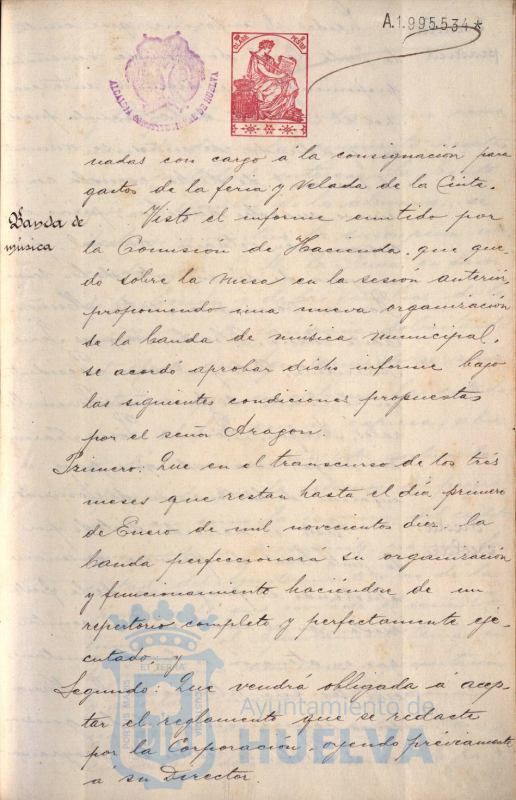 A.1.995.534*
CLASE
ALCALDIA CONSTITUCIONAL DE HUELVA
nadas con cargo á la consignación para
gastos de la feria y Velada de la Cinta.
Banda de
música
Visto el informe emitido por
la Comisión de Hacienda, que que-
dó sobre la mesa en la sesión anterior,
proponiendo una nueva organización
de la banda de música municipal,
se acordó aprobar dicho informe bajo
las siguientes condiciones propuestas
por el señor Aragon.
Primero: Que en el transcurso de los tres
meses que restan hasta el día primero
de Enero de mil novecientos diez, la
banda perfeccionará su organización
y funcionamiento haciéndose de un
repertorio completo y perfectamente eje-
cutado, y
Segundo: Que vendrá obligada á acep-
tar el reglamento que se redacte
por la Corporación, oyendo préviamente
á su Director.
Ayuntamiento de
HUELVA